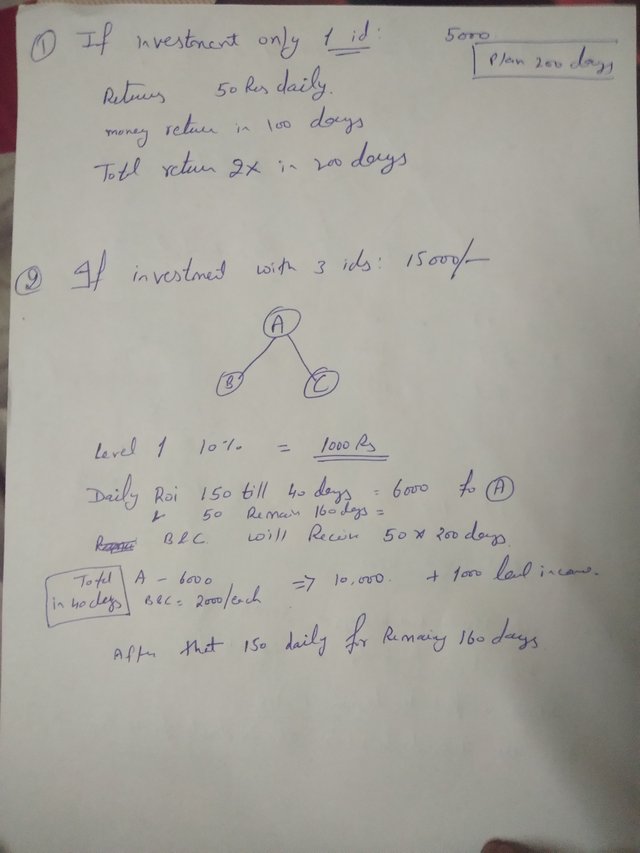 ① If investment only 1 id: 5000
Plan 200 days
Returns 50 Res daily.
money return in 100 days
Total return 2x in 200 days
② If investment with 3 ids: 15000/-
A
B C
Level 1 10% = 1000 Rs
Daily Roi 150 till 40 days = 6000 to A
50 Remain 160 days =
B&C will Receive 50 x 200 days
Total in 40 days
A - 6000
B&C = 2000/each
=> 10,000. + 1000 level income.
After that 150 daily for Remaing 160 days